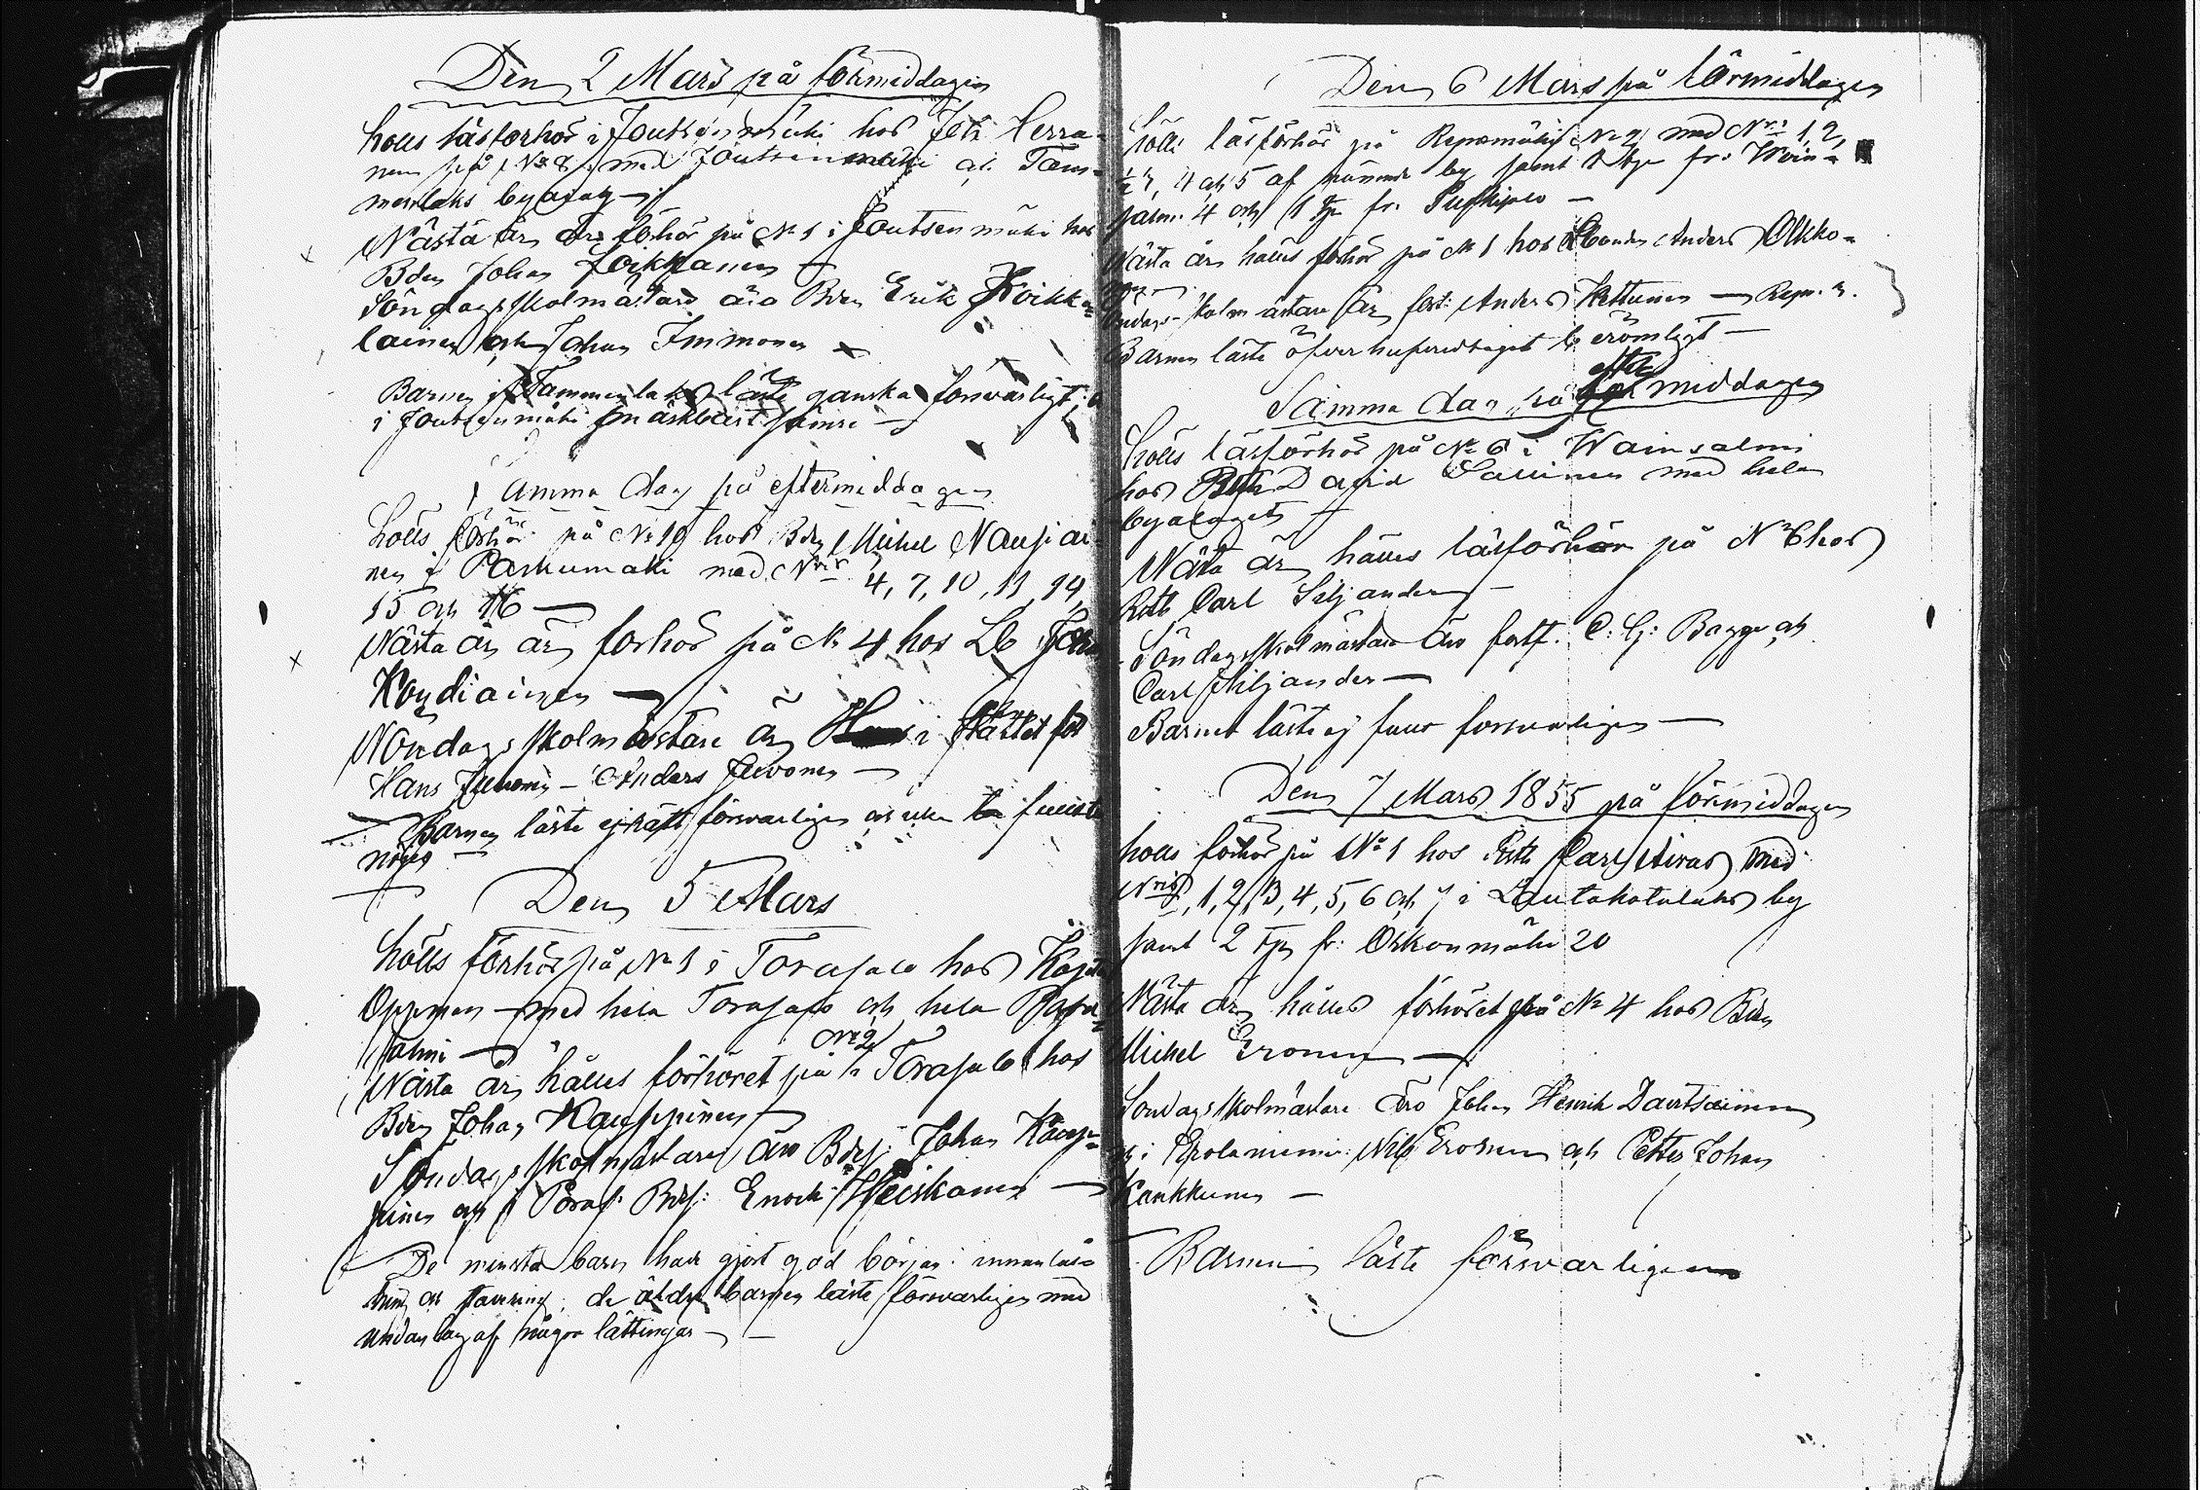 Den 2 Mars på förmiddagen
hölls läsförhör i Joutsenmäki hos Herra-
nen på No 8 med Joutsenmäki och Tam-
menlaks byalag
Nästa år är förhör på No 1 i Joutsenmäki hos
Bden Johan
Söndagsskolmästare äro Bden Erik Koikka-
lainen och Johan Immonen
Barnen i Tammenlaks läste ganska försvarligt;
i Joutsenmäki märkbart sämre
Samma dag på eftermiddagen
hölls förhör på No 10 hos Bden Michel Nousiai
nen i Paskumäki med Nris 4, 7, 10, 11, 14,
15 och 16
Nästa år är förhör på No 4 hos Lb
Kondiainen
Söndagsskolmästare är i stället för
Hans Juvonen – Anders Juvonen
Barnen läste ej rätt försvarligen
nöjes
Den 5 Mars
hölls förhör på No 1 i Torasalo hos
Oppman med hela Torasalo och hela
salmi
No 2
Nästa år hålles förhöret på i Torasalo hos
Bden Johan Kauppinen
Söndagsskolmästare äro Bdes: Johan Kaup-
pinen och Bdes: Enock Heiskanen
De minsta barn hade gjort god början i innanläs-
ning och stavning; de äldre barnen läste försvarligen med
undantag af några lättingar
Den 6 Mars på förmiddagen
hölls läsförhör på No 2 med Nris 1, 2,
½ 3, 4 och 5 af nämnde by samt fr: Wain-
salmi 4 och 1 fr.
Nästa år hålles förhör på No 1 hos Bonden Anders Okko-
nen
Söndagsskolmästare är fort: Anders Kettunen
Barnen läste öfverhufvudtaget berömligt
efter
Samma dag på middagen
hölls läsförhör på No 6 i Wainsalmi
hos David Sallinen med hela
byalaget
Nästa år hålles läsförhör på No 6 hos
Carl Siljander
Söndagsskolmästare äro fortf. C: G: Bagge och
Carl Siljander
Barnen läste ej fullt försvarligen
Den 7 Mars 1855 på förmiddagen
hölls förhör på No 1 hos Carl med
Nris 1, 2, 3, 4, 5, 6 och 7 i Lautakotalaks by
samt 2 fr: Oskonmäki 20
Nästa år hålles förhöret på No 4 hos Bden
Michel Eronen
Söndagsskolmästare äro Johan Henrik Dautsainen
i Nils Eronen och Petter Johan
Kaukkunen
Barnen läste försvarligen